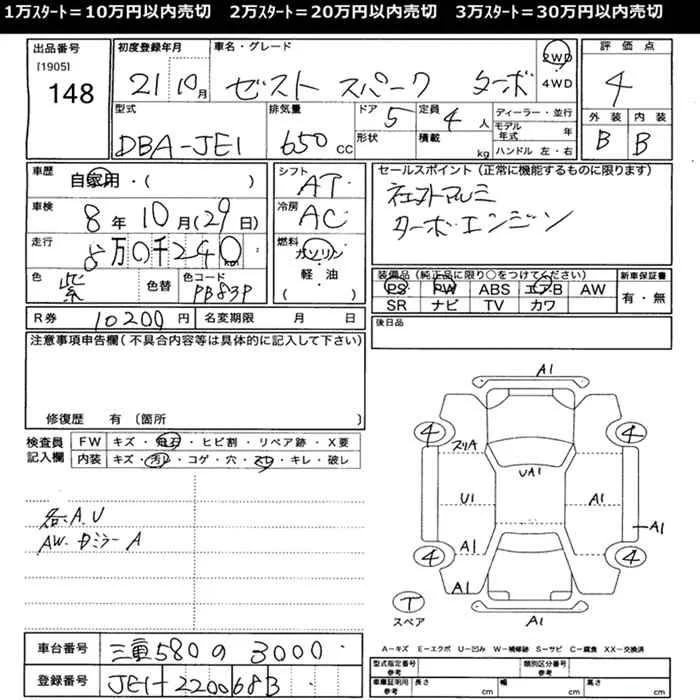 1万ｽﾀｰﾄ＝10万円以内売切　2万ｽﾀｰﾄ＝20万円以内売切　3万ｽﾀｰﾄ＝30万円以内売切
出品番号
[1905]
148
初度登録年月
21 10月
車名・グレード
ゼスト スパーク ターボ
2WD
・
4WD
評価点
4
外装 内装
B B
型式
DBA-JE1
排気量
650 CC
ドア 5
形状
定員 4 人
積載 kg
ディーラー・並行
モデル年式 年
ハンドル 左・右
車歴
自家用・( )
車検
8年10月(29日)
走行
8万0千240
色 紫
色替
色コード
PB83P
シフト AT
冷房 AC
燃料
ガソリン
・
軽油
( )
セールスポイント (正常に機能するものに限ります)
ターボ・エンジン
装備品 (純正品に限り○をつけてください)
PS PW ABS エアB AW
SR ナビ TV カワ
新車保証書
有・無
R券 10200円
名変期限 月 日
後日品
注意事項申告欄(不具合内容等は具体的に記入して下さい)
修復歴 有 (箇所 )
検査員記入欄
FW キズ・飛石・ヒビ割・リペア跡・X要
内装 キズ・汚レ・コゲ・穴・スレ・キレ・破レ
各A.U
AW.ドミラーA
A1
4 4
スリA
UA1
U1 A1
A1
A1
4 4
A1
T
スペア
A1
A－キズ E－エクボ U－凹み W－補修跡 S－サビ C－腐食 XX－交換済
車台番号 三重580の3000
登録番号 JE1-2200683
型式指定番号
参考
類別区分番号
参考
車庫証明用
参考
長さ cm 幅 cm 高さ cm